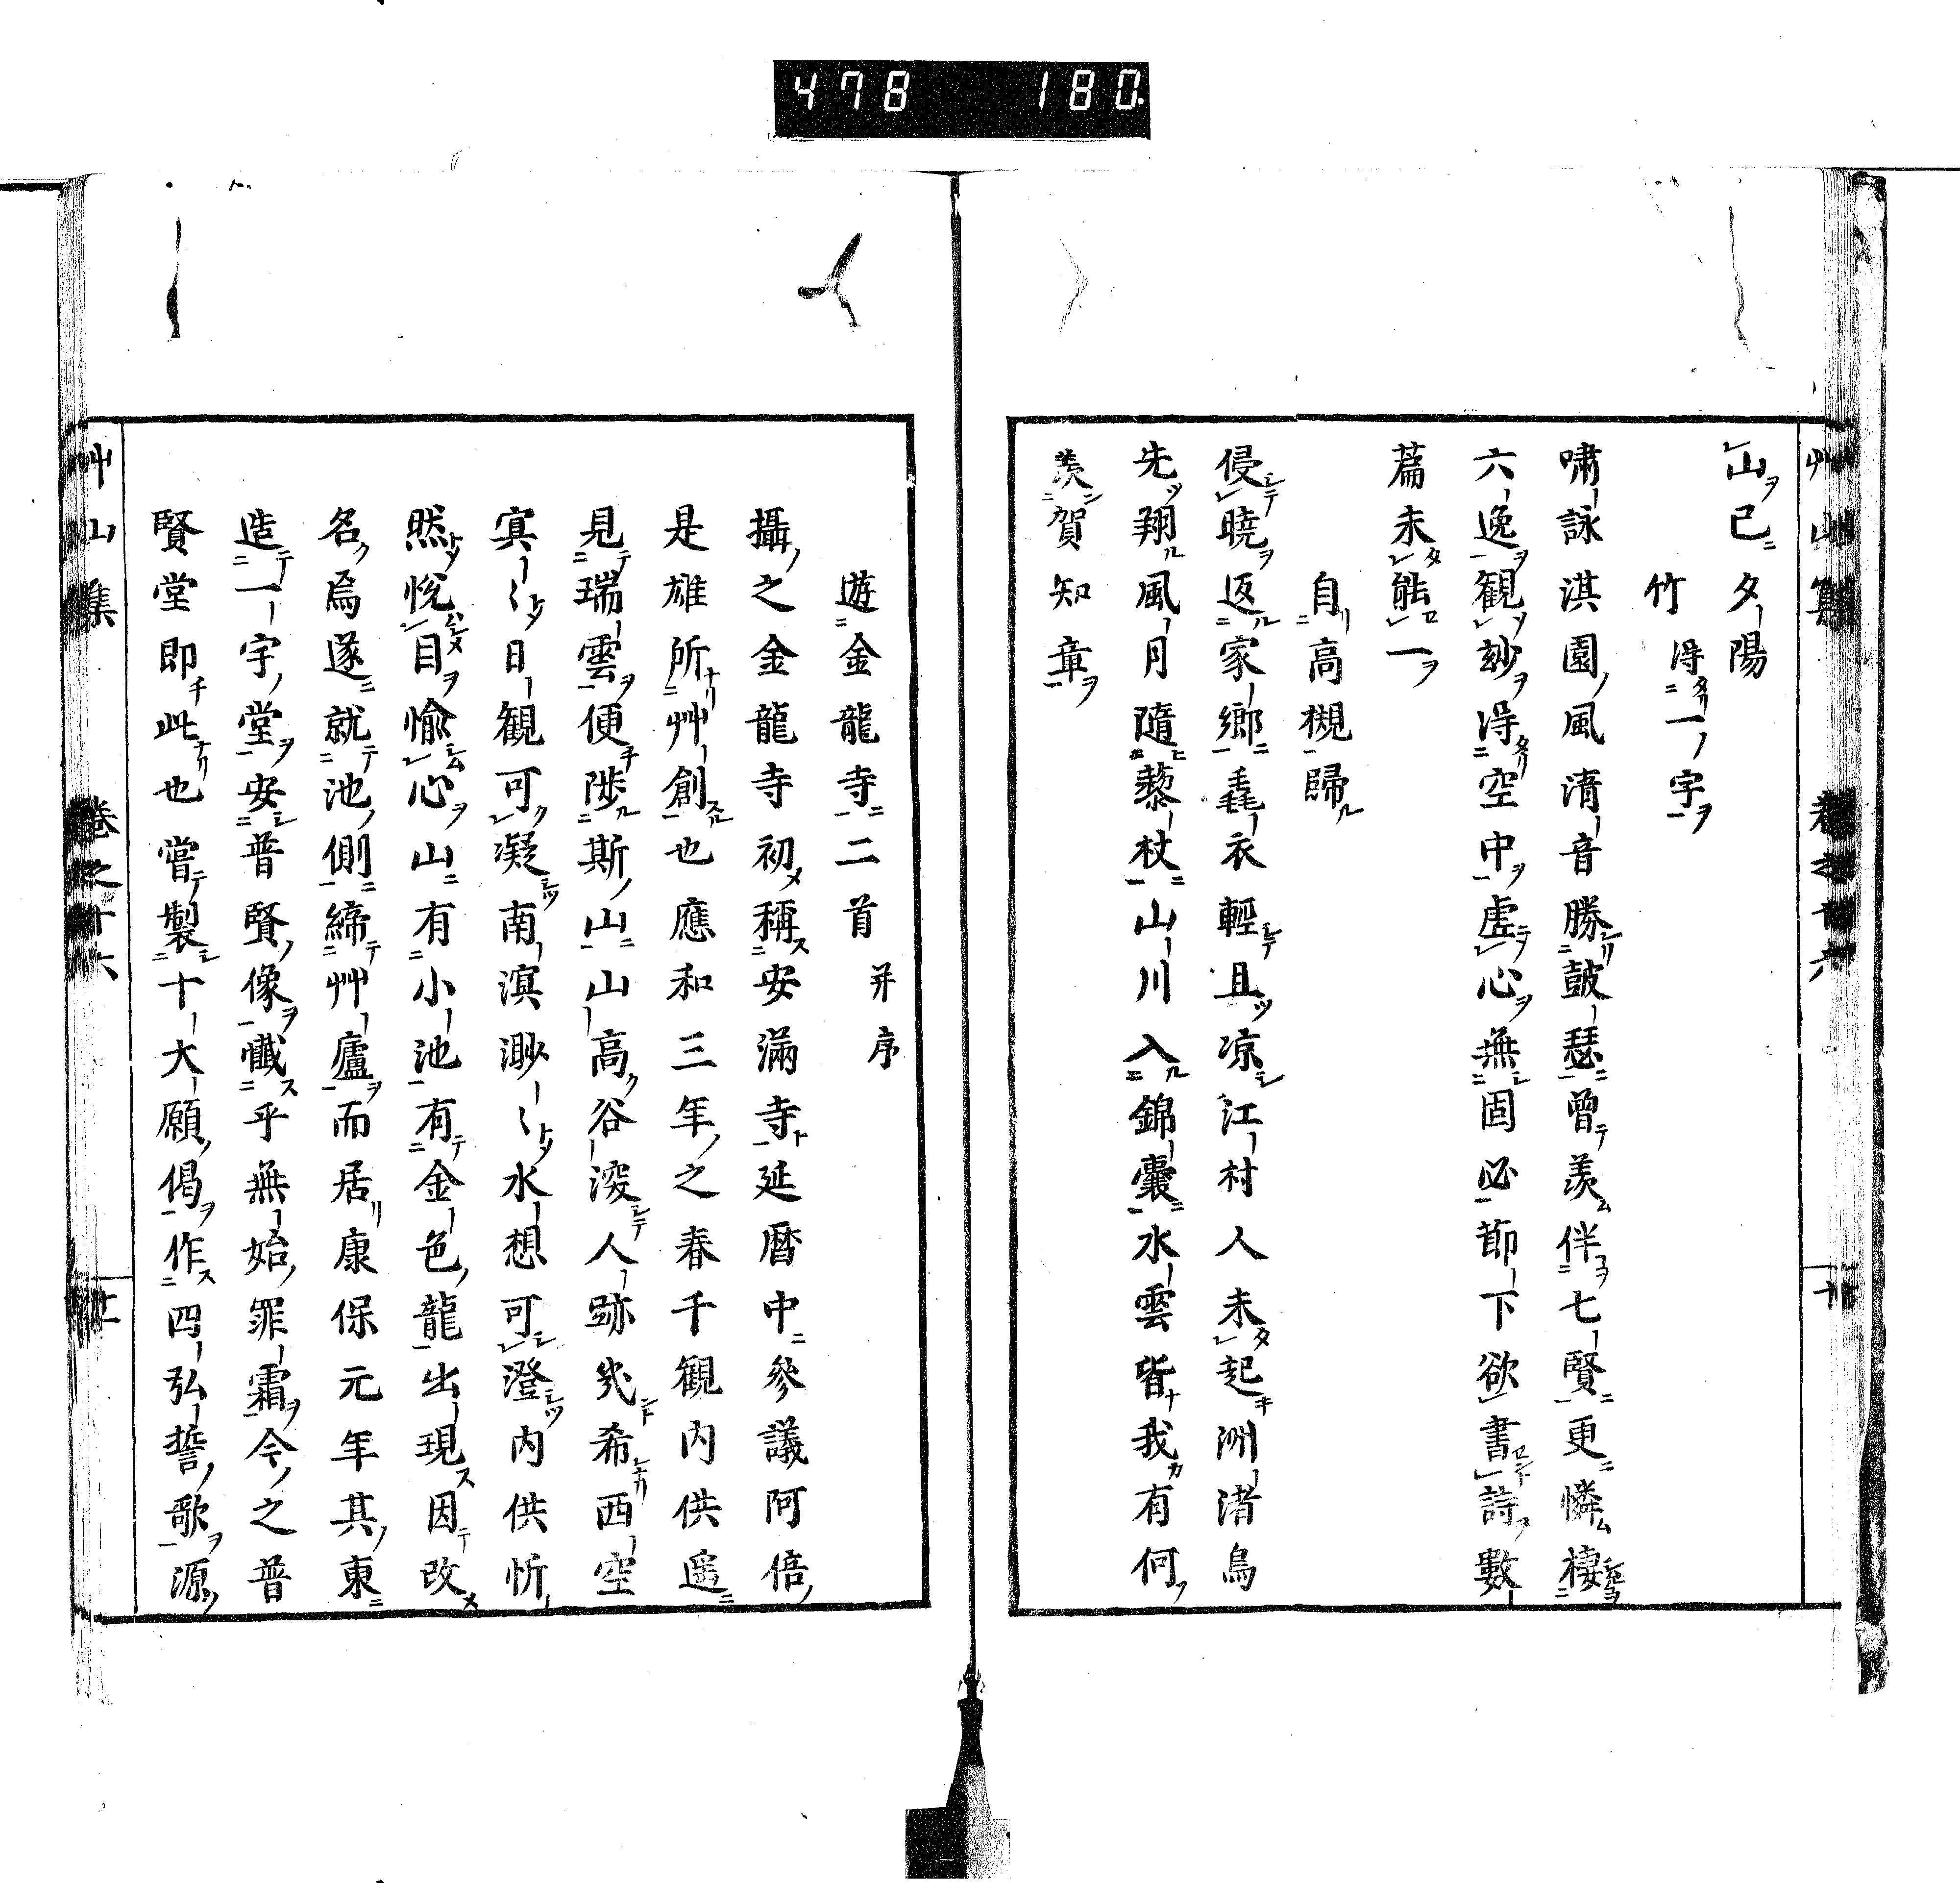 478 180
艸山集 卷之十六 十
山已夕陽
竹 得一字
嘯詠淇園風清音勝皷瑟曾羨伴七賢更憐棲
六逸觀玅得空中虛心無固必節下欲書詩數
篇未能一
自高槻歸
侵曉返家鄉毳衣輕且凉江村人未起洲渚鳥
先翔風月隨藜杖山川入錦囊水雲皆我有何
羨賀知章
遊金龍寺二首 并序
攝之金龍寺初稱安滿寺延暦中參議阿倍
是雄所艸創也應和三年之春千觀内供遥
見瑞雲便陟斯山山高谷深人跡㡬希西空
寞〻日觀可凝南溟渺〻水想可澄内供忻
然悅目愉心山有小池有金色龍出現因改
名焉遂就池側締艸廬而居康保元年其東
造一宇堂安普賢像懺乎無始罪霜今之普
賢堂即此也嘗製十大願偈作四弘誓歌源
艸山集 卷之十六 十一